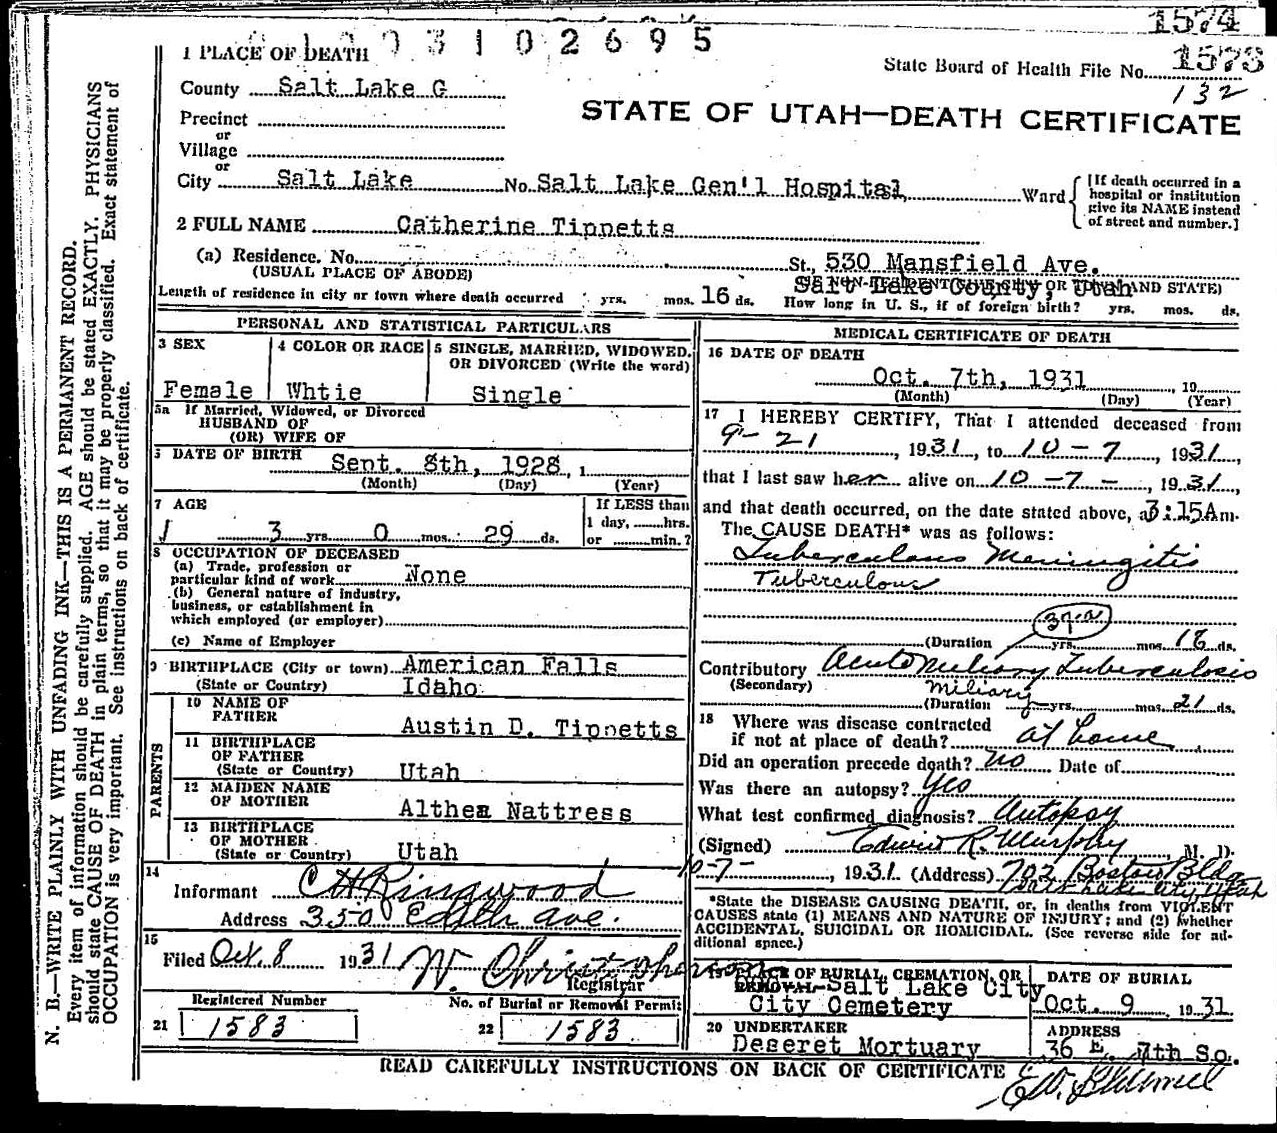 3 1 0 2 6 9 5
1574
1573
132
1 PLACE OF DEATH
State Board of Health File No.
County Salt Lake C
STATE OF UTAH—DEATH CERTIFICATE
Precinct
or
Village
or
City Salt Lake No. Salt Lake Gen'l Hospital, Ward
[If death occurred in a
hospital or institution
give its NAME instead
of street and number.]
2 FULL NAME Catherine Tippetts
(a) Residence. No. St., 530 Mansfield Ave.
(USUAL PLACE OF ABODE) Salt Lake County, Utah
Length of residence in city or town where death occurred yrs. mos. 16 ds. How long in U. S., if of foreign birth? yrs. mos. ds.
PERSONAL AND STATISTICAL PARTICULARS
3 SEX
Female
4 COLOR OR RACE
Whtie
5 SINGLE, MARRIED, WIDOWED,
OR DIVORCED (Write the word)
Single
5a If Married, Widowed, or Divorced
HUSBAND OF
(OR) WIFE OF
6 DATE OF BIRTH Sept. 8th, 1928, 1
(Month) (Day) (Year)
7 AGE
3 yrs. 0 mos. 29 ds.
If LESS than
1 day, hrs.
or min.?
8 OCCUPATION OF DECEASED
(a) Trade, profession or
particular kind of work None
(b) General nature of industry,
business, or establishment in
which employed (or employer)
(c) Name of Employer
9 BIRTHPLACE (City or town) American Falls
(State or Country) Idaho
PARENTS
10 NAME OF
FATHER Austin D. Tippetts
11 BIRTHPLACE
OF FATHER
(State or Country) Utah
12 MAIDEN NAME
OF MOTHER Althea Nattress
13 BIRTHPLACE
OF MOTHER
(State or Country) Utah
14
Informant C H Ringwood
Address 350 Edith Ave.
15
Filed Oct. 8 1931 W. Christopherson
Registrar
Registered Number
21 1583
No. of Burial or Removal Permit
22 1583
MEDICAL CERTIFICATE OF DEATH
16 DATE OF DEATH
Oct. 7th, 1931, 19
(Month) (Day) (Year)
17 I HEREBY CERTIFY, That I attended deceased from
9-21, 1931, to 10-7, 1931,
that I last saw her alive on 10-7-, 1931,
and that death occurred, on the date stated above, at 3:15 A m.
The CAUSE DEATH* was as follows:
Tuberculous Meningitis
Tuberculous
(Duration yrs. mos. 18 ds.
Contributory Acute Miliary Tuberculosis
(Secondary) Miliary
(Duration yrs. mos. 21 ds.
18 Where was disease contracted
if not at place of death? at home
Did an operation precede death? No Date of
Was there an autopsy? Yes
What test confirmed diagnosis? Autopsy
(Signed) Edwin R. Murphy, M. D.
10-7-, 1931. (Address) 702 Boston Bldg
Salt Lake City Utah
*State the DISEASE CAUSING DEATH, or, in deaths from VIOLENT
CAUSES state (1) MEANS AND NATURE OF INJURY; and (2) whether
ACCIDENTAL, SUICIDAL OR HOMICIDAL. (See reverse side for ad-
ditional space.)
19 PLACE OF BURIAL, CREMATION, OR
REMOVAL Salt Lake City
City Cemetery
DATE OF BURIAL
Oct. 9 1931.
20 UNDERTAKER
Deseret Mortuary
ADDRESS
36 E. 7th So.
READ CAREFULLY INSTRUCTIONS ON BACK OF CERTIFICATE
N. B.—WRITE PLAINLY WITH UNFADING INK—THIS IS A PERMANENT RECORD.
Every item of information should be carefully supplied. AGE should be stated EXACTLY. PHYSICIANS
should state CAUSE OF DEATH in plain terms, so that it may be properly classified. Exact statement of
OCCUPATION is very important. See instructions on back of certificate.